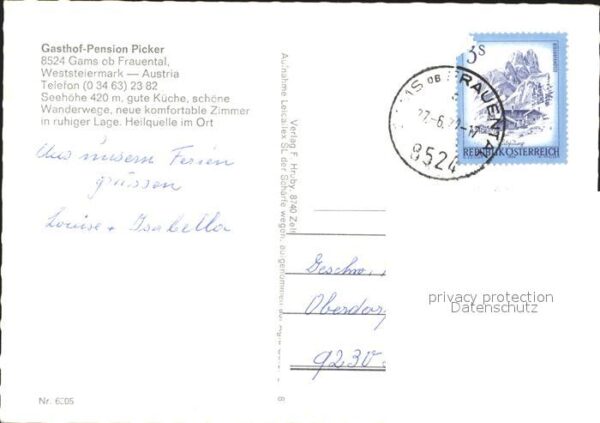 Gasthof-Pension Picker
8524 Gams ob Frauental,
Weststeiermark — Austria
Telefon (0 34 63) 23 82
Seehöhe 420 m, gute Küche, schöne
Wanderwege, neue komfortable Zimmer
in ruhiger Lage. Heilquelle im Ort
Aus unsern Ferien
grüssen
Louise + Isabella
Nr. 6505
Verlag F. Hruby, 8740 Zelt
Aufnahme Leicaflex SL, der Schärfe wegen, aufgenommen
8
3S
REPUBLIK ÖSTERREICH
GAMS OB FRAUENTAL
8524
Geschw.
Oberdor
9230
privacy protection
Datenschutz